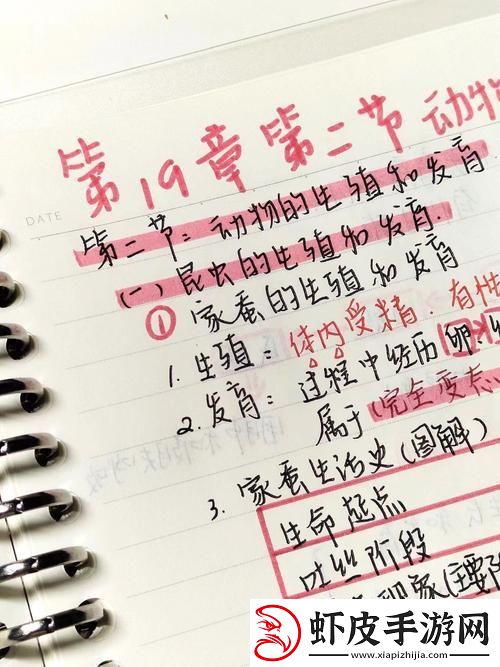 第19章第二节动物
DATE
第二节：动物的生殖和发育
(一)昆虫的生殖和发育.
① 家蚕的生殖和发育
1. 生殖：体内受精.有性
2. 发育：过程中经历卵.
属于(完全变态
3. 家蚕生活史(图解)
生命起点
吐丝阶段
虾皮手游网
www.xiapizhijia.com